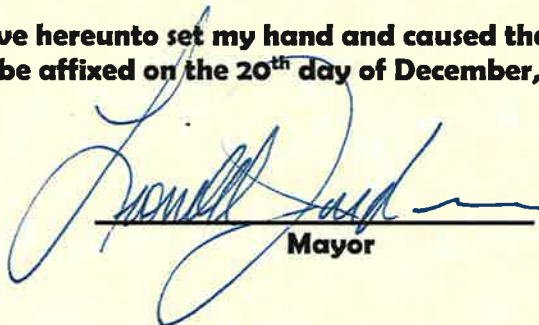 ve hereunto set my hand and caused the
be affixed on the 20th day of December,
Mayor